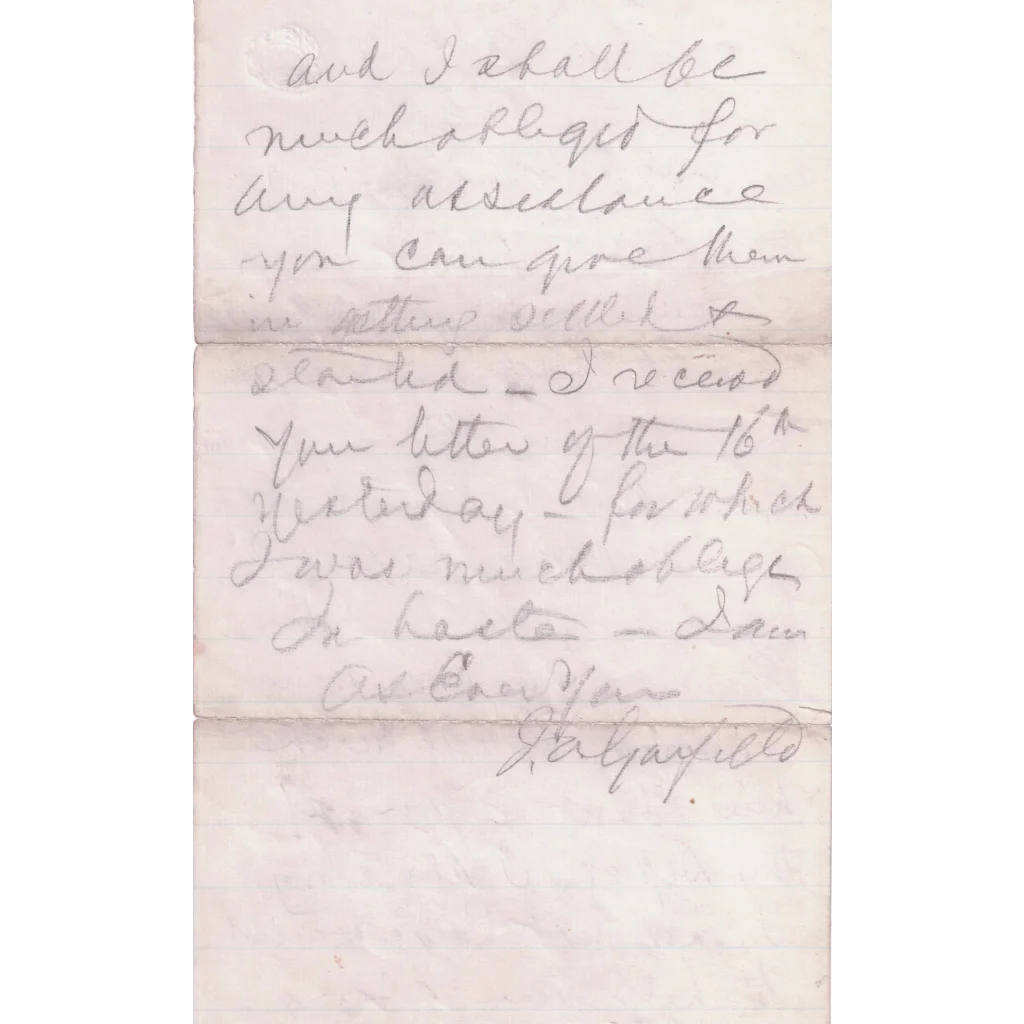 and I shall be
much obliged for
any assistance
you can give them
in getting settled &
started – I received
your letter of the 16th
yesterday – for which
I was much oblige
In haste – I am
As Ever Yours
J. A Garfield